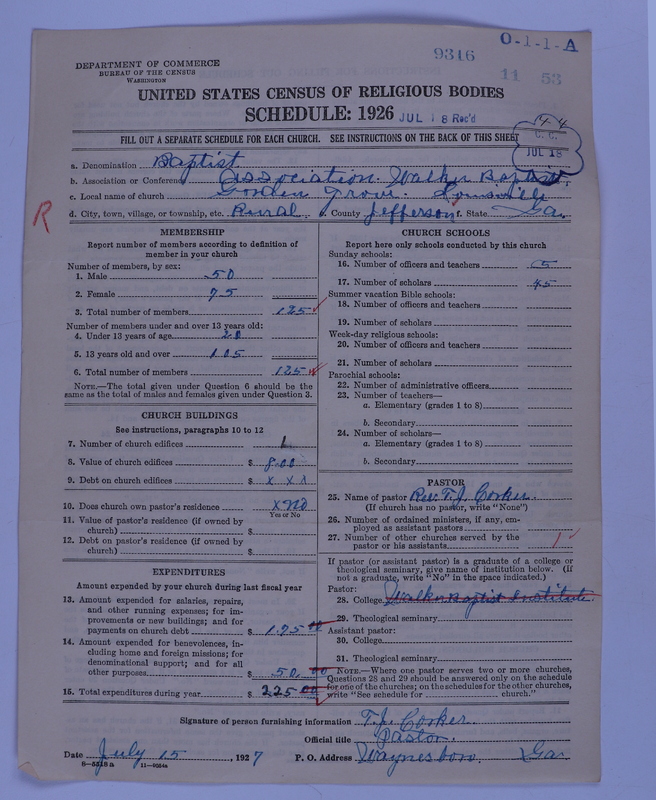 O-1-1-A
9346
11 53
DEPARTMENT OF COMMERCE
BUREAU OF THE CENSUS
WASHINGTON
UNITED STATES CENSUS OF RELIGIOUS BODIES
SCHEDULE: 1926 JUL 18 Rec'd
FILL OUT A SEPARATE SCHEDULE FOR EACH CHURCH. SEE INSTRUCTIONS ON THE BACK OF THIS SHEET
C. C.
JUL 18
a. Denomination Baptist
b. Association or Conference Association. Walker Baptist.
c. Local name of church Grove. Louisville
d. City, town, village, or township, etc. Rural e. County Jefferson f. State Ga.
R
MEMBERSHIP
Report number of members according to definition of
member in your church
Number of members, by sex:
1. Male 50
2. Female 75
3. Total number of members 125
Number of members under and over 13 years old:
4. Under 13 years of age 20
5. 13 years old and over 105
6. Total number of members 125
NOTE.—The total given under Question 6 should be the
same as the total of males and females given under Question 3.
CHURCH BUILDINGS
See instructions, paragraphs 10 to 12
7. Number of church edifices 1
8. Value of church edifices $ 800
9. Debt on church edifices $ x x x
10. Does church own pastor's residence? x No
Yes or No
11. Value of pastor's residence (if owned by
church) $
12. Debt on pastor's residence (if owned by
church) $
EXPENDITURES
Amount expended by your church during last fiscal year
13. Amount expended for salaries, repairs,
and other running expenses; for im-
provements or new buildings; and for
payments on church debt $ 175 00
14. Amount expended for benevolences, in-
cluding home and foreign missions; for
denominational support; and for all
other purposes $ 50 00
15. Total expenditures during year $ 225 00
CHURCH SCHOOLS
Report here only schools conducted by this church
Sunday schools:
16. Number of officers and teachers 5
17. Number of scholars 45
Summer vacation Bible schools:
18. Number of officers and teachers
19. Number of scholars
Week-day religious schools:
20. Number of officers and teachers
21. Number of scholars
Parochial schools:
22. Number of administrative officers
23. Number of teachers—
a. Elementary (grades 1 to 8)
b. Secondary
24. Number of scholars—
a. Elementary (grades 1 to 8)
b. Secondary
PASTOR
25. Name of pastor Rev. T. J. Corker.
(If church has no pastor, write "None")
26. Number of ordained ministers, if any, em-
ployed as assistant pastors
27. Number of other churches served by the
pastor or his assistants 1
If pastor (or assistant pastor) is a graduate of a college or
theological seminary, give name of institution below. (If
not a graduate, write "No" in the space indicated.)
Pastor:
28. College Walker Baptist Institute.
29. Theological seminary
Assistant pastor:
30. College
31. Theological seminary
NOTE.—Where one pastor serves two or more churches,
Questions 28 and 29 should be answered only on the schedule
for one of the churches; on the schedules for the other churches,
write "See schedule for church."
Signature of person furnishing information T. J. Corker
Official title Pastor.
Date July 15, 1927 P. O. Address Waynesboro Ga
8-5548a 11-9554a